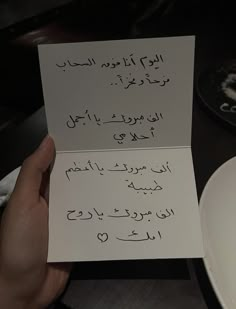 اليوم أنا فوق السحاب
فرحاً وفخراً..
الف مبروك يا أجمل
أحلامي
ألف مبروك يا أعظم
طبيبة
الف مبروك ياروح
امك ♡